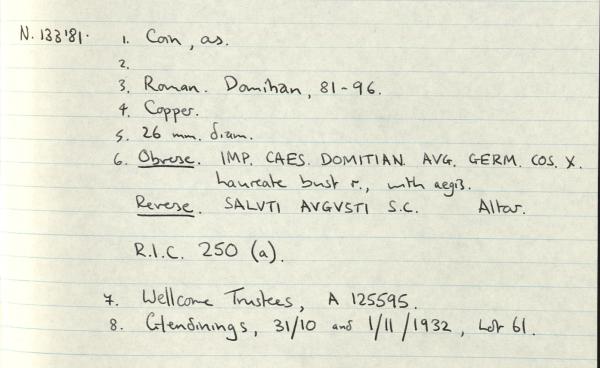 N. 133'81. 1. Coin, as.
2.
3. Roman. Domitian, 81-96.
4. Copper.
5. 26 mm. diam.
6. Obverse. IMP. CAES. DOMITIAN. AVG. GERM. COS. X.
Laureate bust r., with aegis.
Reverse. SALVTI AVGVSTI S.C. Altar.
R.I.C. 250 (a).
7. Wellcome Trustees, A 125595.
8. Glendinings, 31/10 and 1/11/1932, Lot 61.